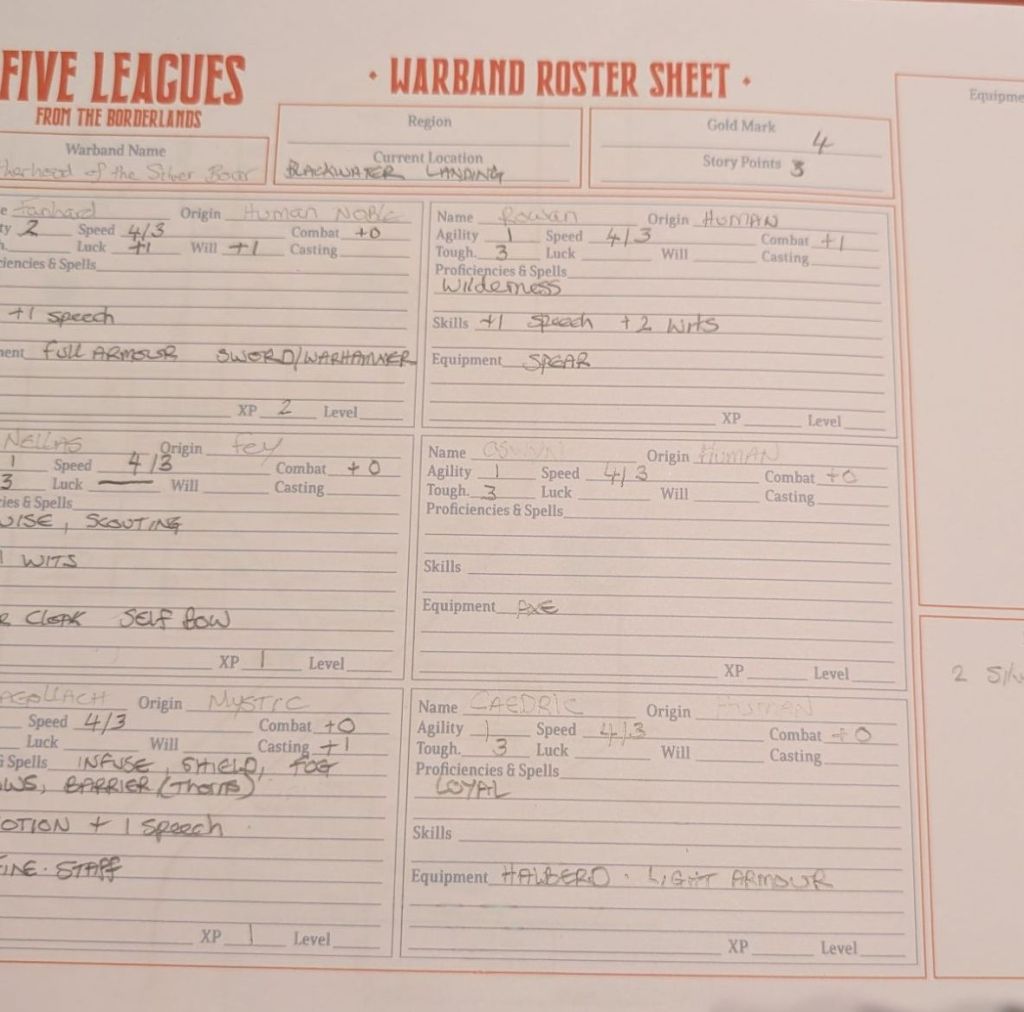 FIVE LEAGUES
FROM THE BORDERLANDS
• WARBAND ROSTER SHEET •
Warband Name
of the Silver
Region
Current Location
BLACKWATER LANDING
Gold Mark 4
Story Points 3
Equipme
e Origin Human Noble
ty 2 Speed 4/3 Combat +0
h. Luck +1 Will +1 Casting
ciencies & Spells
+1 speech
ment Full ARMOUR SWORD/WARHAMMER
XP 2 Level
Name Rowan Origin HUMAN
Agility 1 Speed 4/3 Combat +1
Tough. 3 Luck Will Casting
Proficiencies & Spells
Wilderness
Skills +1 speech +2 Wits
Equipment SPEAR
XP Level
NELLAS Origin fey
1 Speed 4/3 Combat +0
3 Luck — Will Casting
ies & Spells
UISE, SCOUTING
1 WITS
R CLOAK SELF BOW
XP 1 Level
Name Origin HUMAN
Agility 1 Speed 4/3 Combat +0
Tough. 3 Luck Will Casting
Proficiencies & Spells
Skills
Equipment AXE
XP Level
Origin MYSTIC
Speed 4/3 Combat +0
Luck Will Casting +1
& Spells INFUSE, SHIELD, FOG
OWS, BARRIER (Thorns)
OTION +1 speech
FINE. STAFF
XP 1 Level
Name CAEDRIC Origin HUMAN
Agility 1 Speed 4/3 Combat +0
Tough. 3 Luck Will Casting
Proficiencies & Spells
LOYAL
Skills
Equipment HALBERD . LIGHT ARMOUR
XP Level
2 Silv